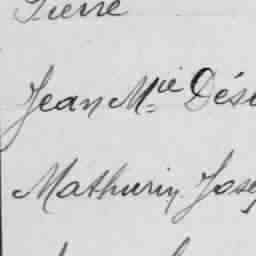 Pierre
Jean Mie Dési
Mathurin Jose